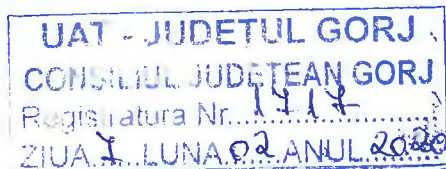 UAT - JUDETUL GORJ
CONSILIUL JUDETEAN GORJ
Registratura Nr....1717
ZIUA.7..LUNA.02.ANUL.2020